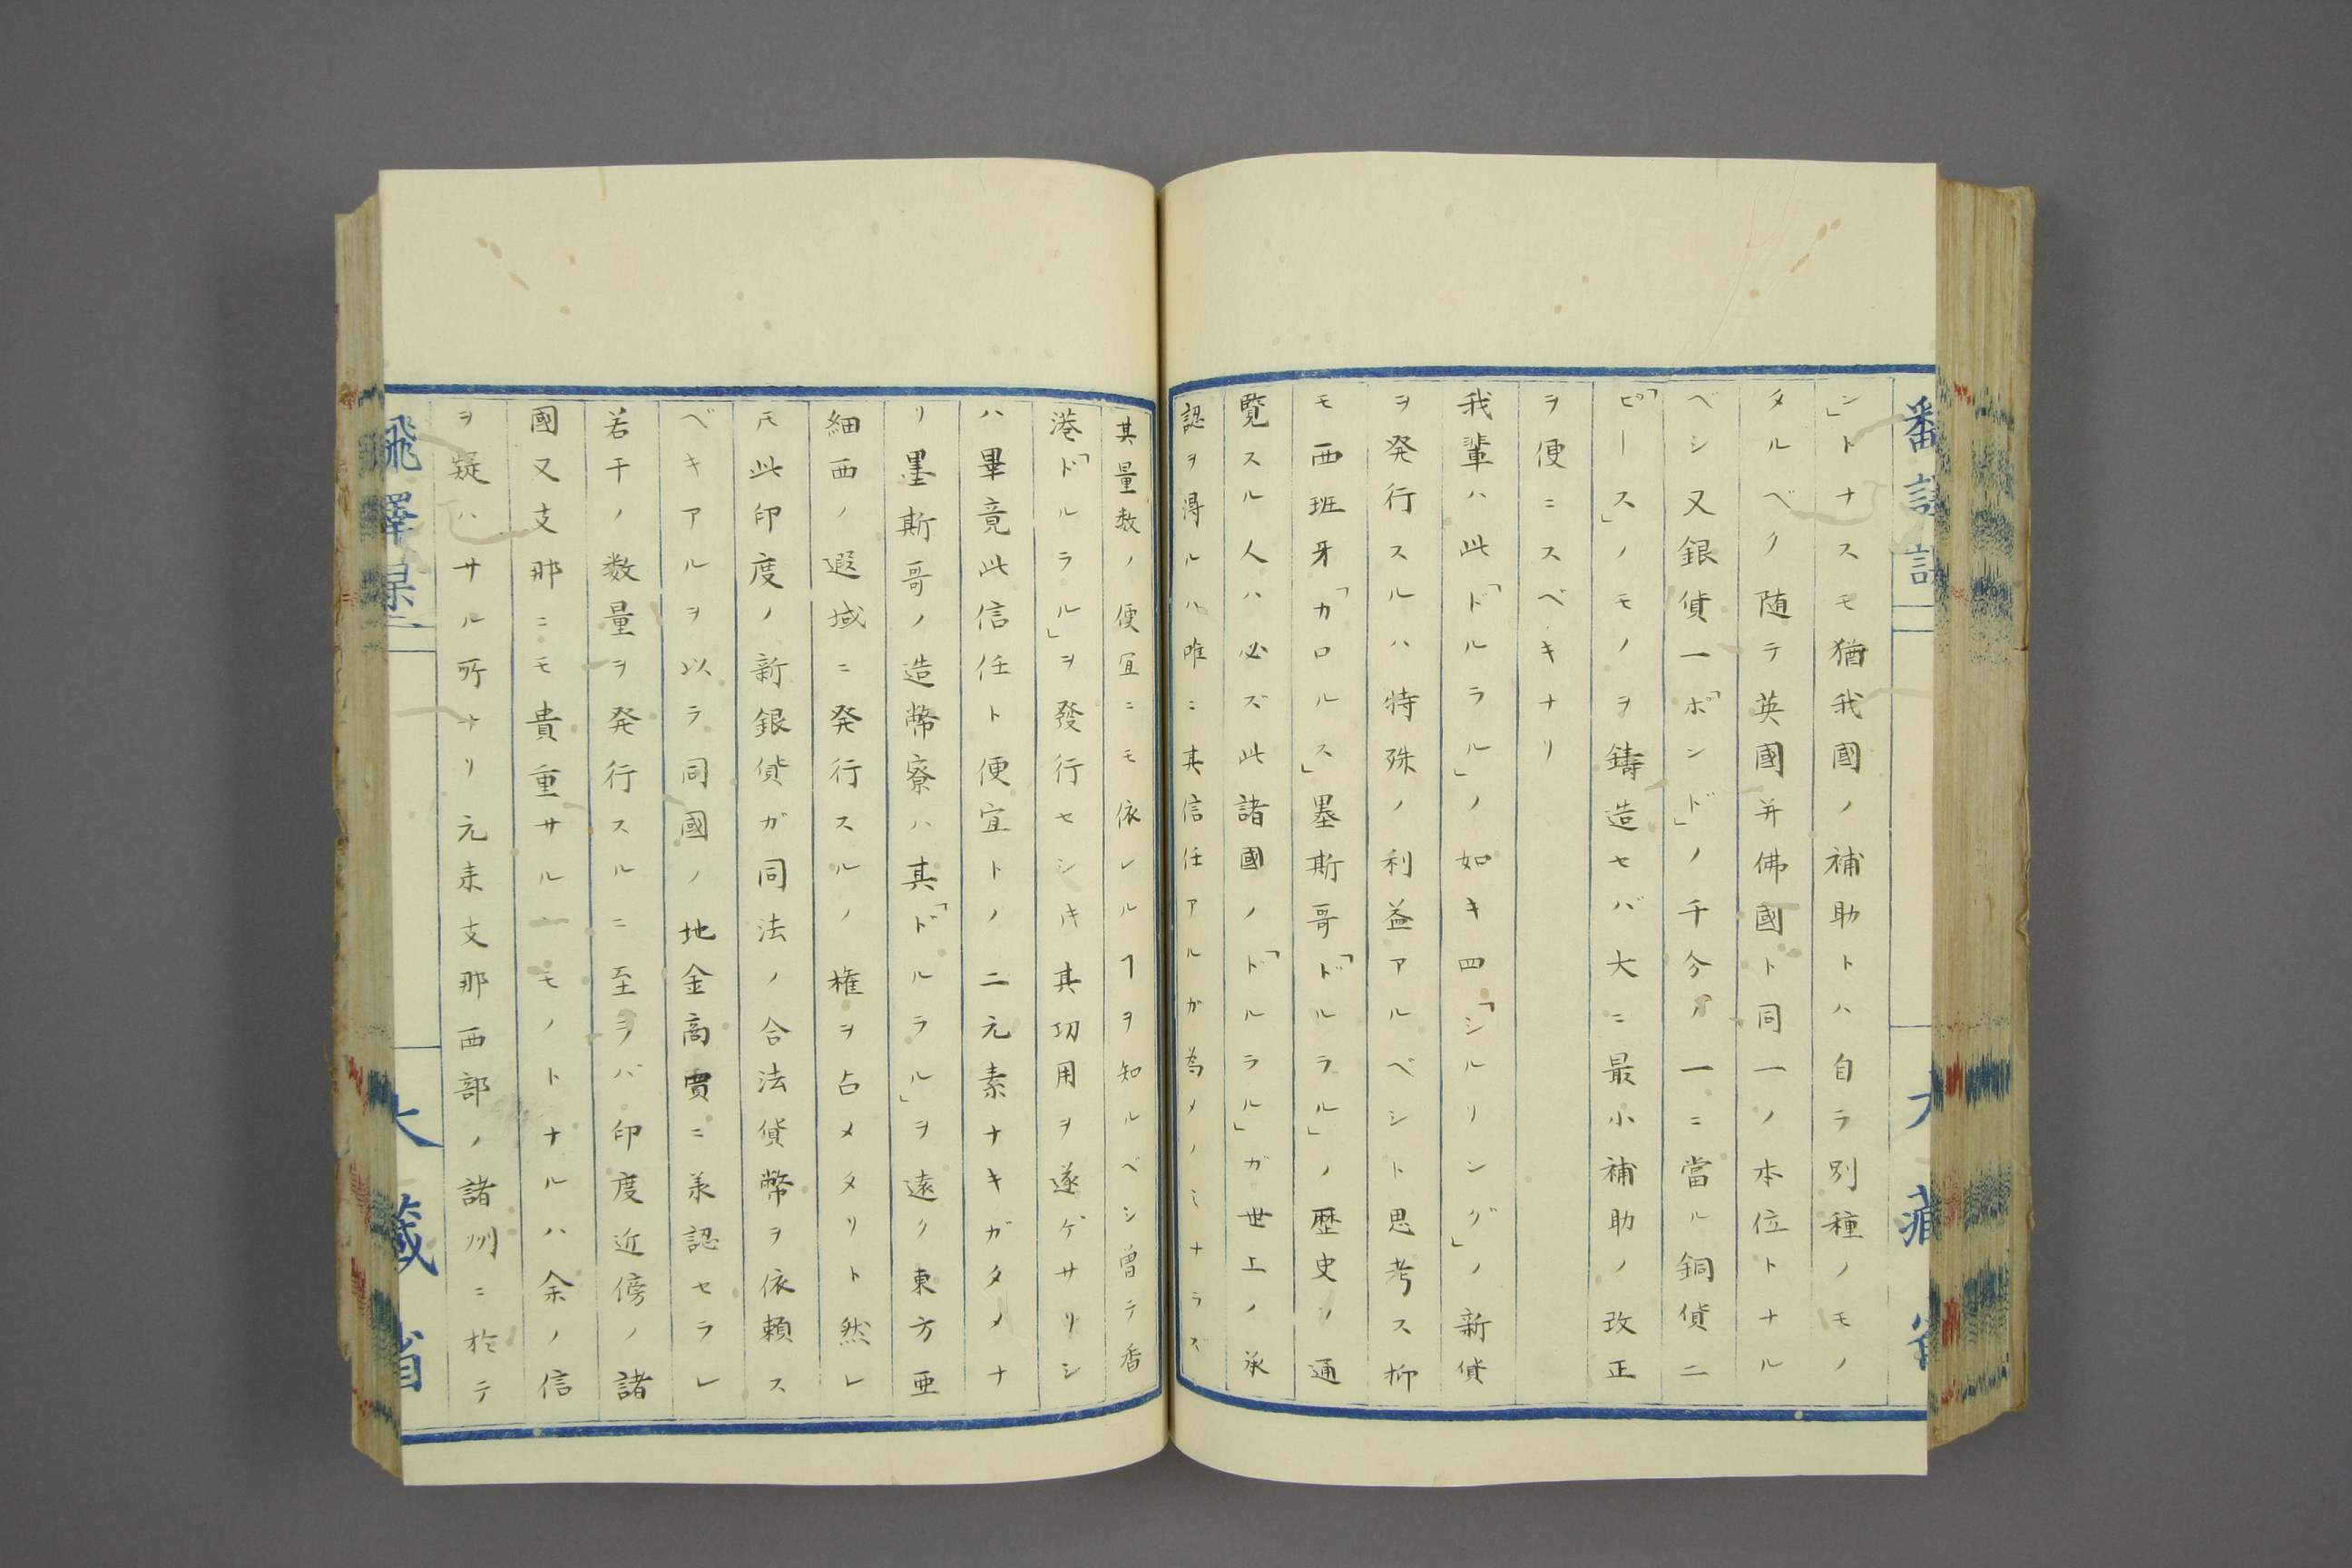 シ」トナスモ猶我國ノ補助トハ自ラ別種ノモノ
タルベク随テ英國并佛國ト同一ノ本位トナル
ベシ又銀貨一「ポンド」ノ千分ノ一ニ當ル銅貨二
「ピース」ノモノヲ鋳造セバ大ニ最小補助ノ改正
ヲ便ニスベキナリ
我輩ハ此「ドルラル」ノ如キ四「シルリング」ノ新貨
ヲ発行スルハ特殊ノ利益アルベシト思考ス抑
モ西班牙「カロルス」墨斯哥「ドルラル」ノ歴史ノ通
覧スル人ハ必ズ此諸國ノ「ドルラル」ガ世上ノ承
認ヲ得ルハ唯ニ其信任アルガ為メノミナラズ
其量数ノ便宜ニモ依レルヿヲ知ルベシ曽テ香
港「ドルラル」ヲ發行セシ𪜈其功用ヲ遂ゲサリシ
ハ畢竟此信任ト便宜トノ二元素ナキガタメナ
リ墨斯哥ノ造幣寮ハ其「ドルラル」ヲ遠ク東方亜
細西ノ遐域ニ発行スルノ権ヲ占メタリト然レ
𪜈此印度ノ新銀貨ガ同法ノ合法貨幣ヲ依頼ス
ベキアルヲ以ラ同國ノ地金商賈ニ承認セラレ
若干ノ数量ヲ発行スルニ至ラバ印度近傍ノ諸
國又支那ニモ貴重サルヽモノトナルハ余ノ信
ヲ疑ハサル所ナリ元来支那西部ノ諸州ニ於テ
大藏省